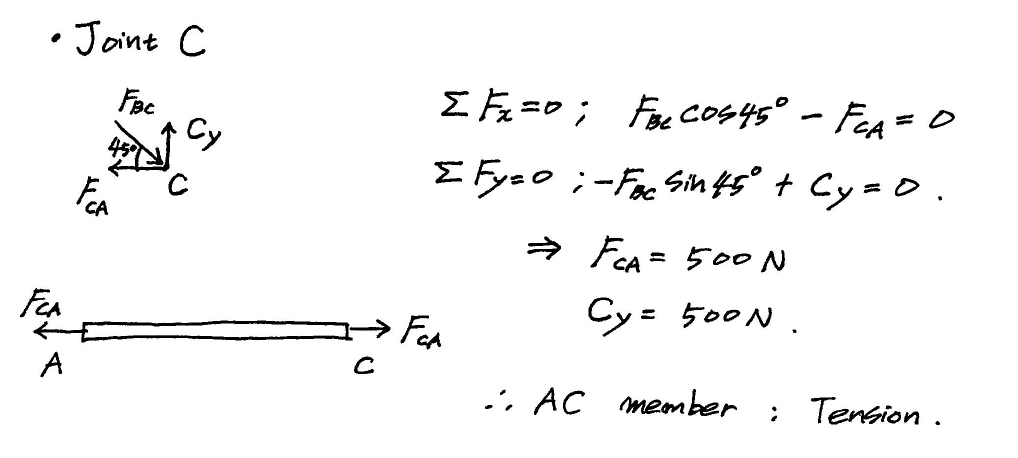 • Joint C
F_BC
C_y
45°
F_CA
C
ΣF_x=0 ; F_BC cos45° - F_CA = 0
ΣF_y=0 ; -F_BC sin45° + C_y = 0 .
⇒ F_CA = 500 N
C_y = 500 N .
F_CA
F_CA
A
C
∴ AC member ; Tension .